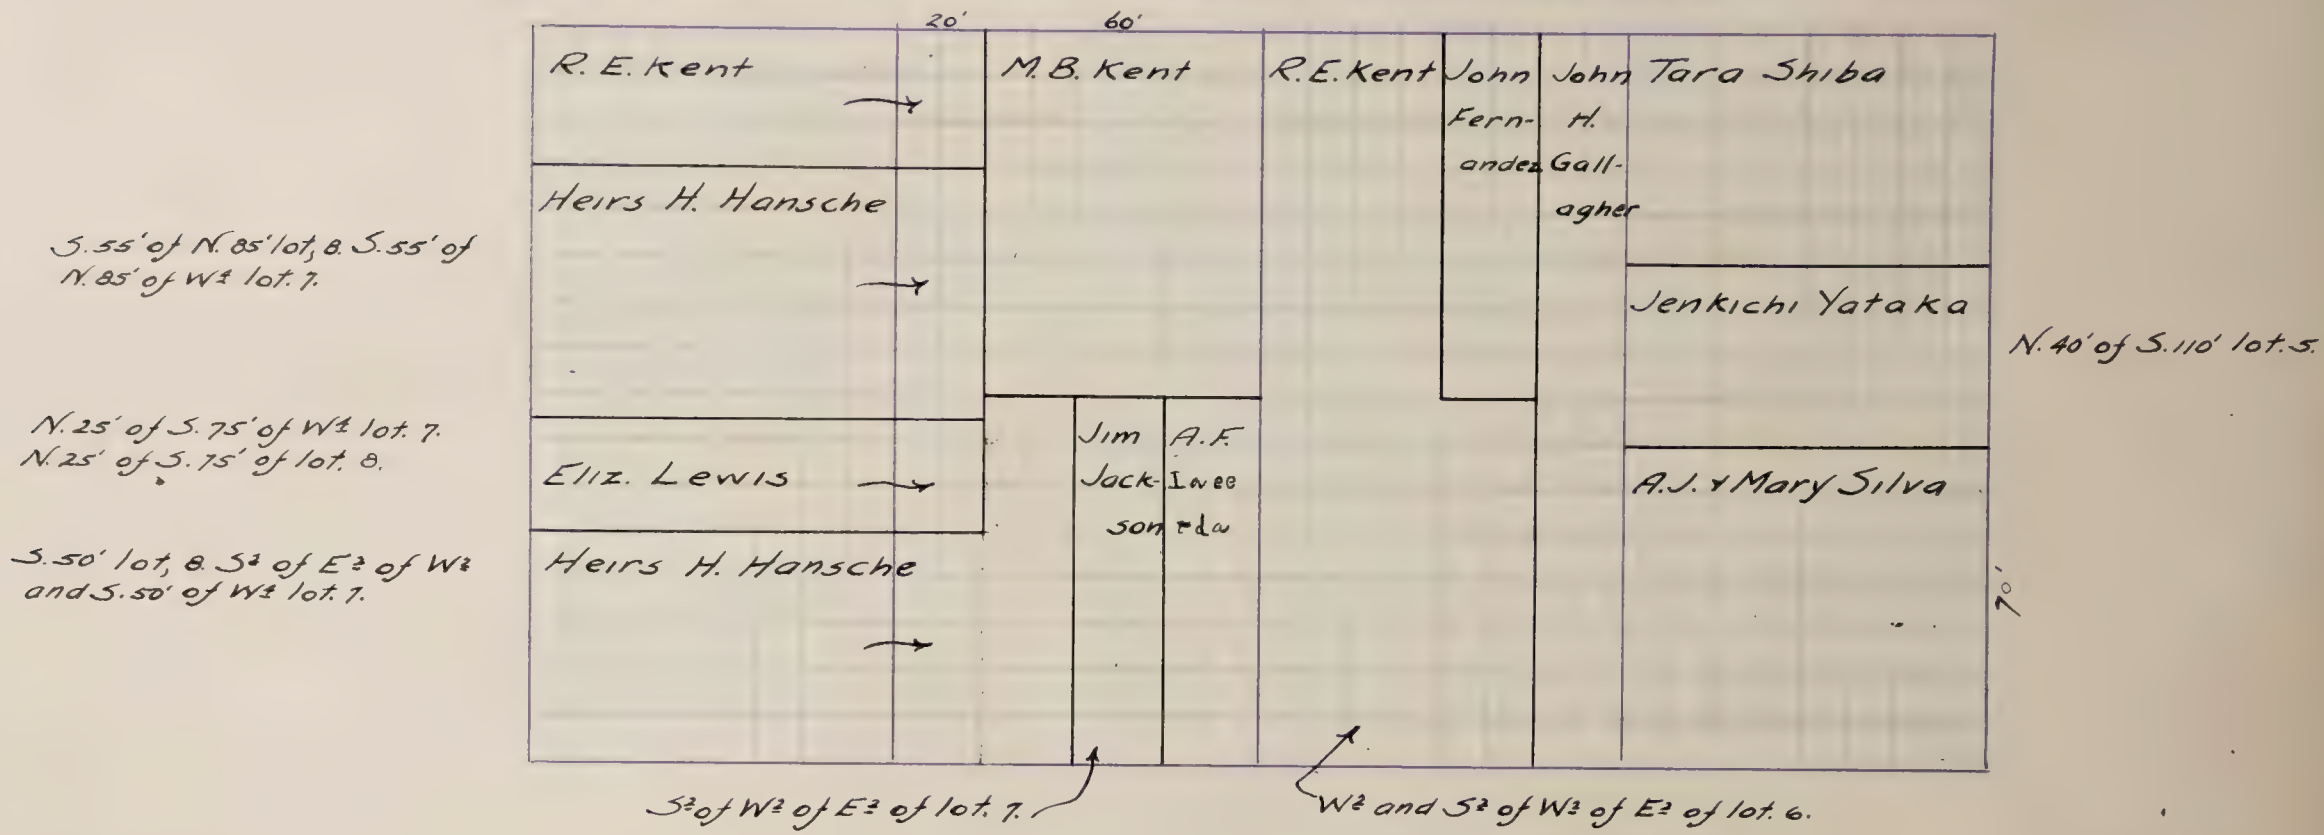 20' 60'
R. E. Kent
M. B. Kent
R. E. Kent
John
Fern-
andez
John
H.
Gall-
agher
Tara Shiba
Heirs H. Hansche
S. 55' of N. 85' lot, 8. S. 55' of
N. 85' of W¼ lot. 7.
Jenkichi Yataka
N. 40' of S. 110' lot. 5.
N. 25' of S. 75' of W¼ lot. 7.
N. 25' of S. 75' of lot. 8.
Eliz. Lewis
Jim
Jack-
son
A. F.
A. J. & Mary Silva
70'
S. 50' lot, 8. S½ of E½ of W½
and S. 50' of W¼ lot. 7.
Heirs H. Hansche
S½ of W½ of E½ of lot. 7.
W½ and S½ of W½ of E½ of lot. 6.